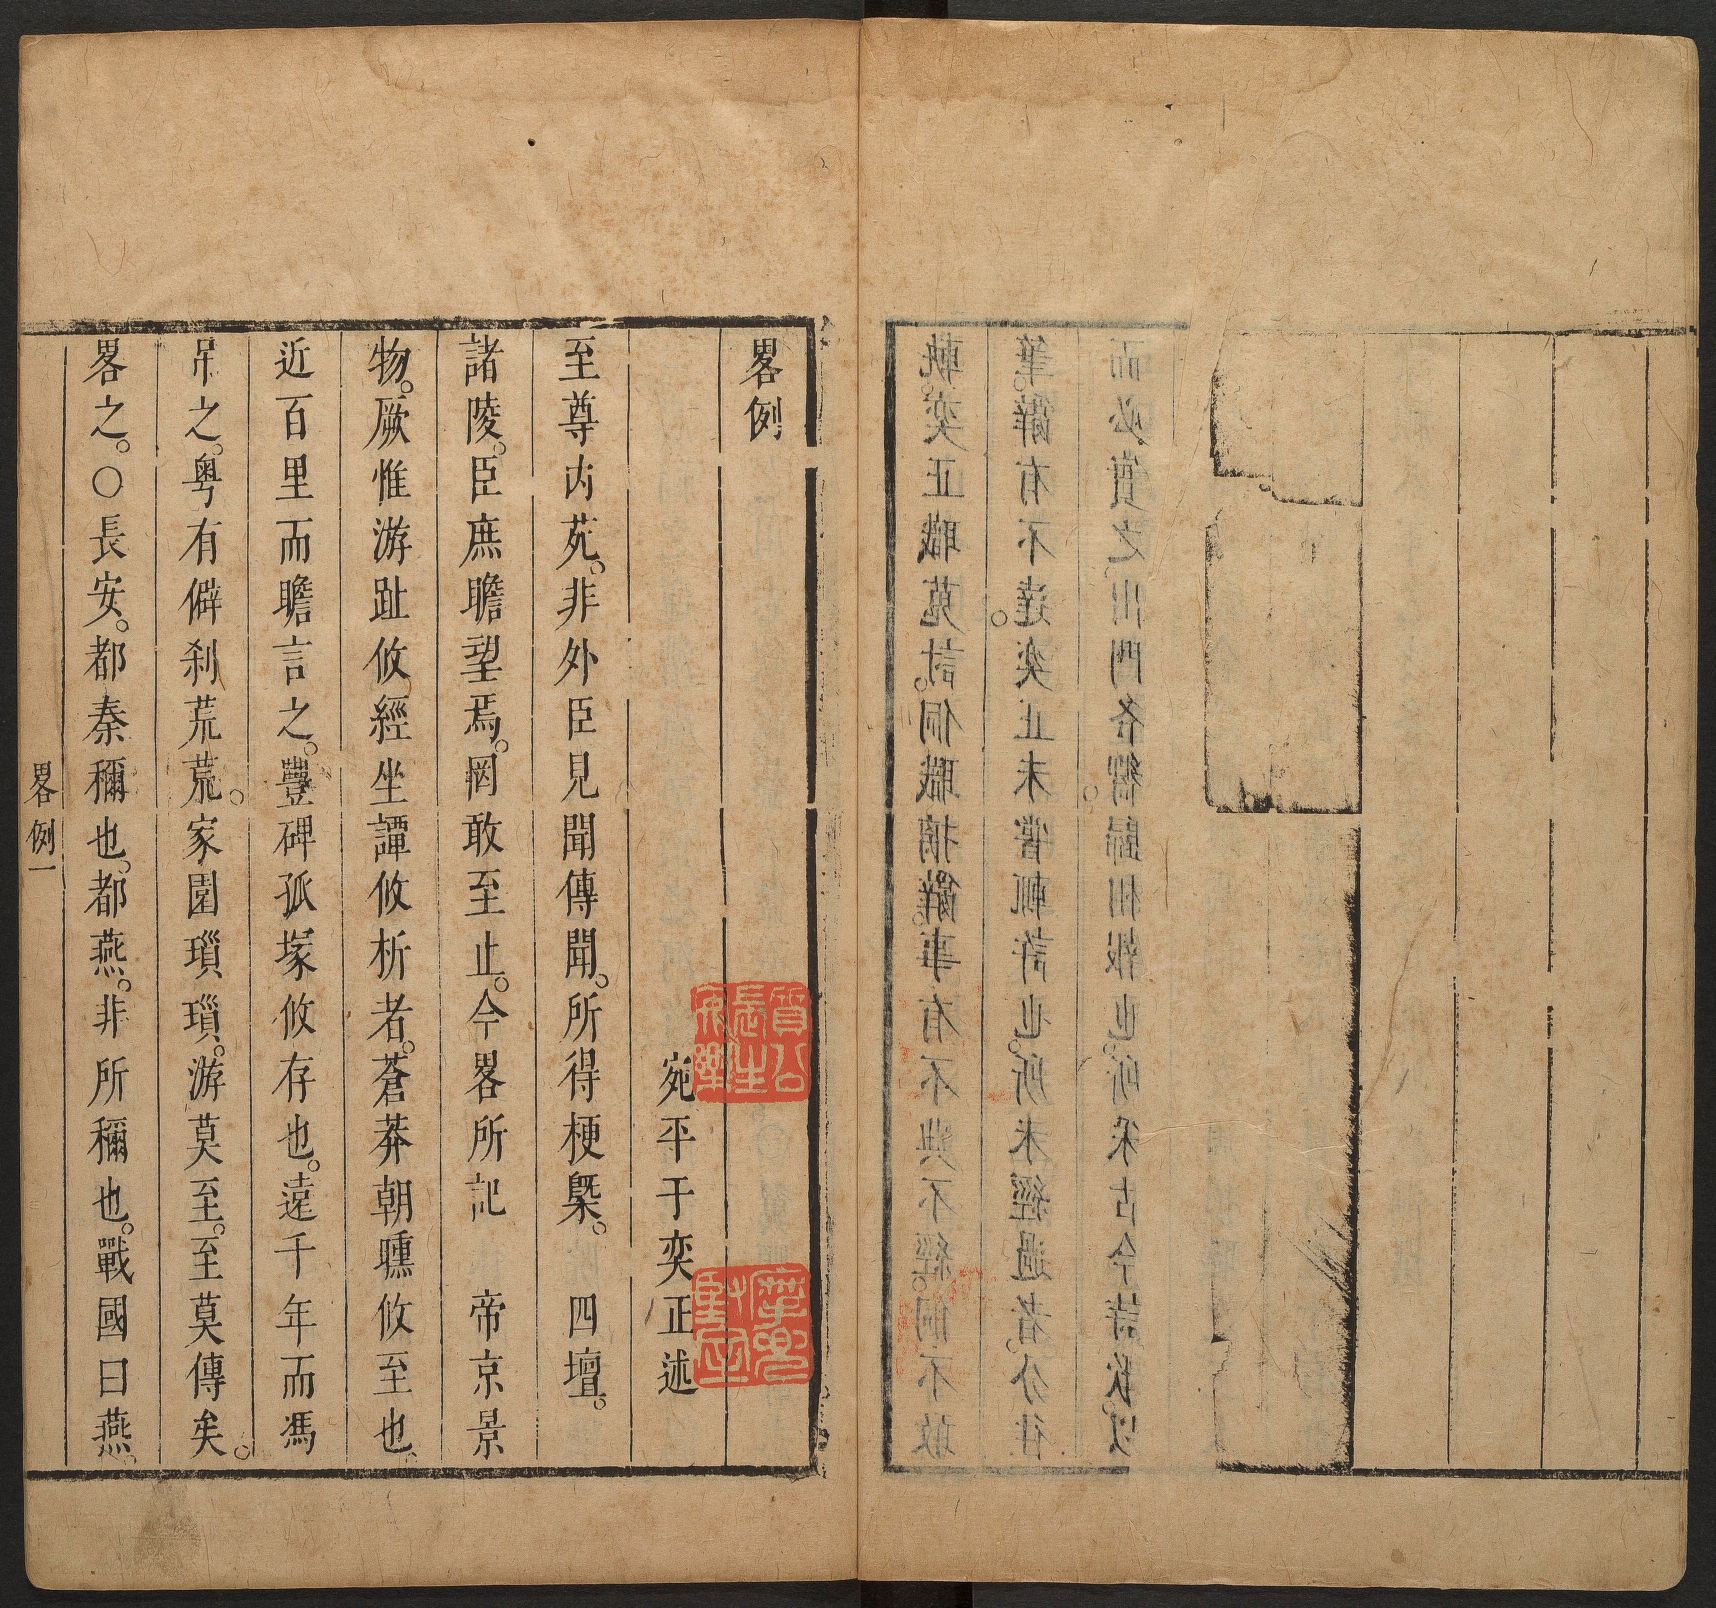 軌。奕正職蒐討。侗職摛辭。事有不典不經。侗不敢
筆。辭有不達。奕正未嘗輒許也。所未經過者。分往
而必實之。出門各嚮。歸相報也。所采古今詩歌以
畧例
宛平于奕正述
至尊内苑。非外臣見聞傳聞。所得梗槩。四壇。
諸陵。臣庶瞻望焉。罔敢至止。今畧所記 帝京景
物。厥惟游趾攸經坐譚攸析者。蒼莽朝曛攸至也。
近百里而瞻言之。豐碑孤塚攸存也。遠千年而馮
吊之。粤有僻刹荒荒。家園瑣瑣。游莫至。至莫傳矣。
畧之。○長安。都秦稱也。都燕。非所稱也。戰國曰燕。
畧例一
質公長生安樂